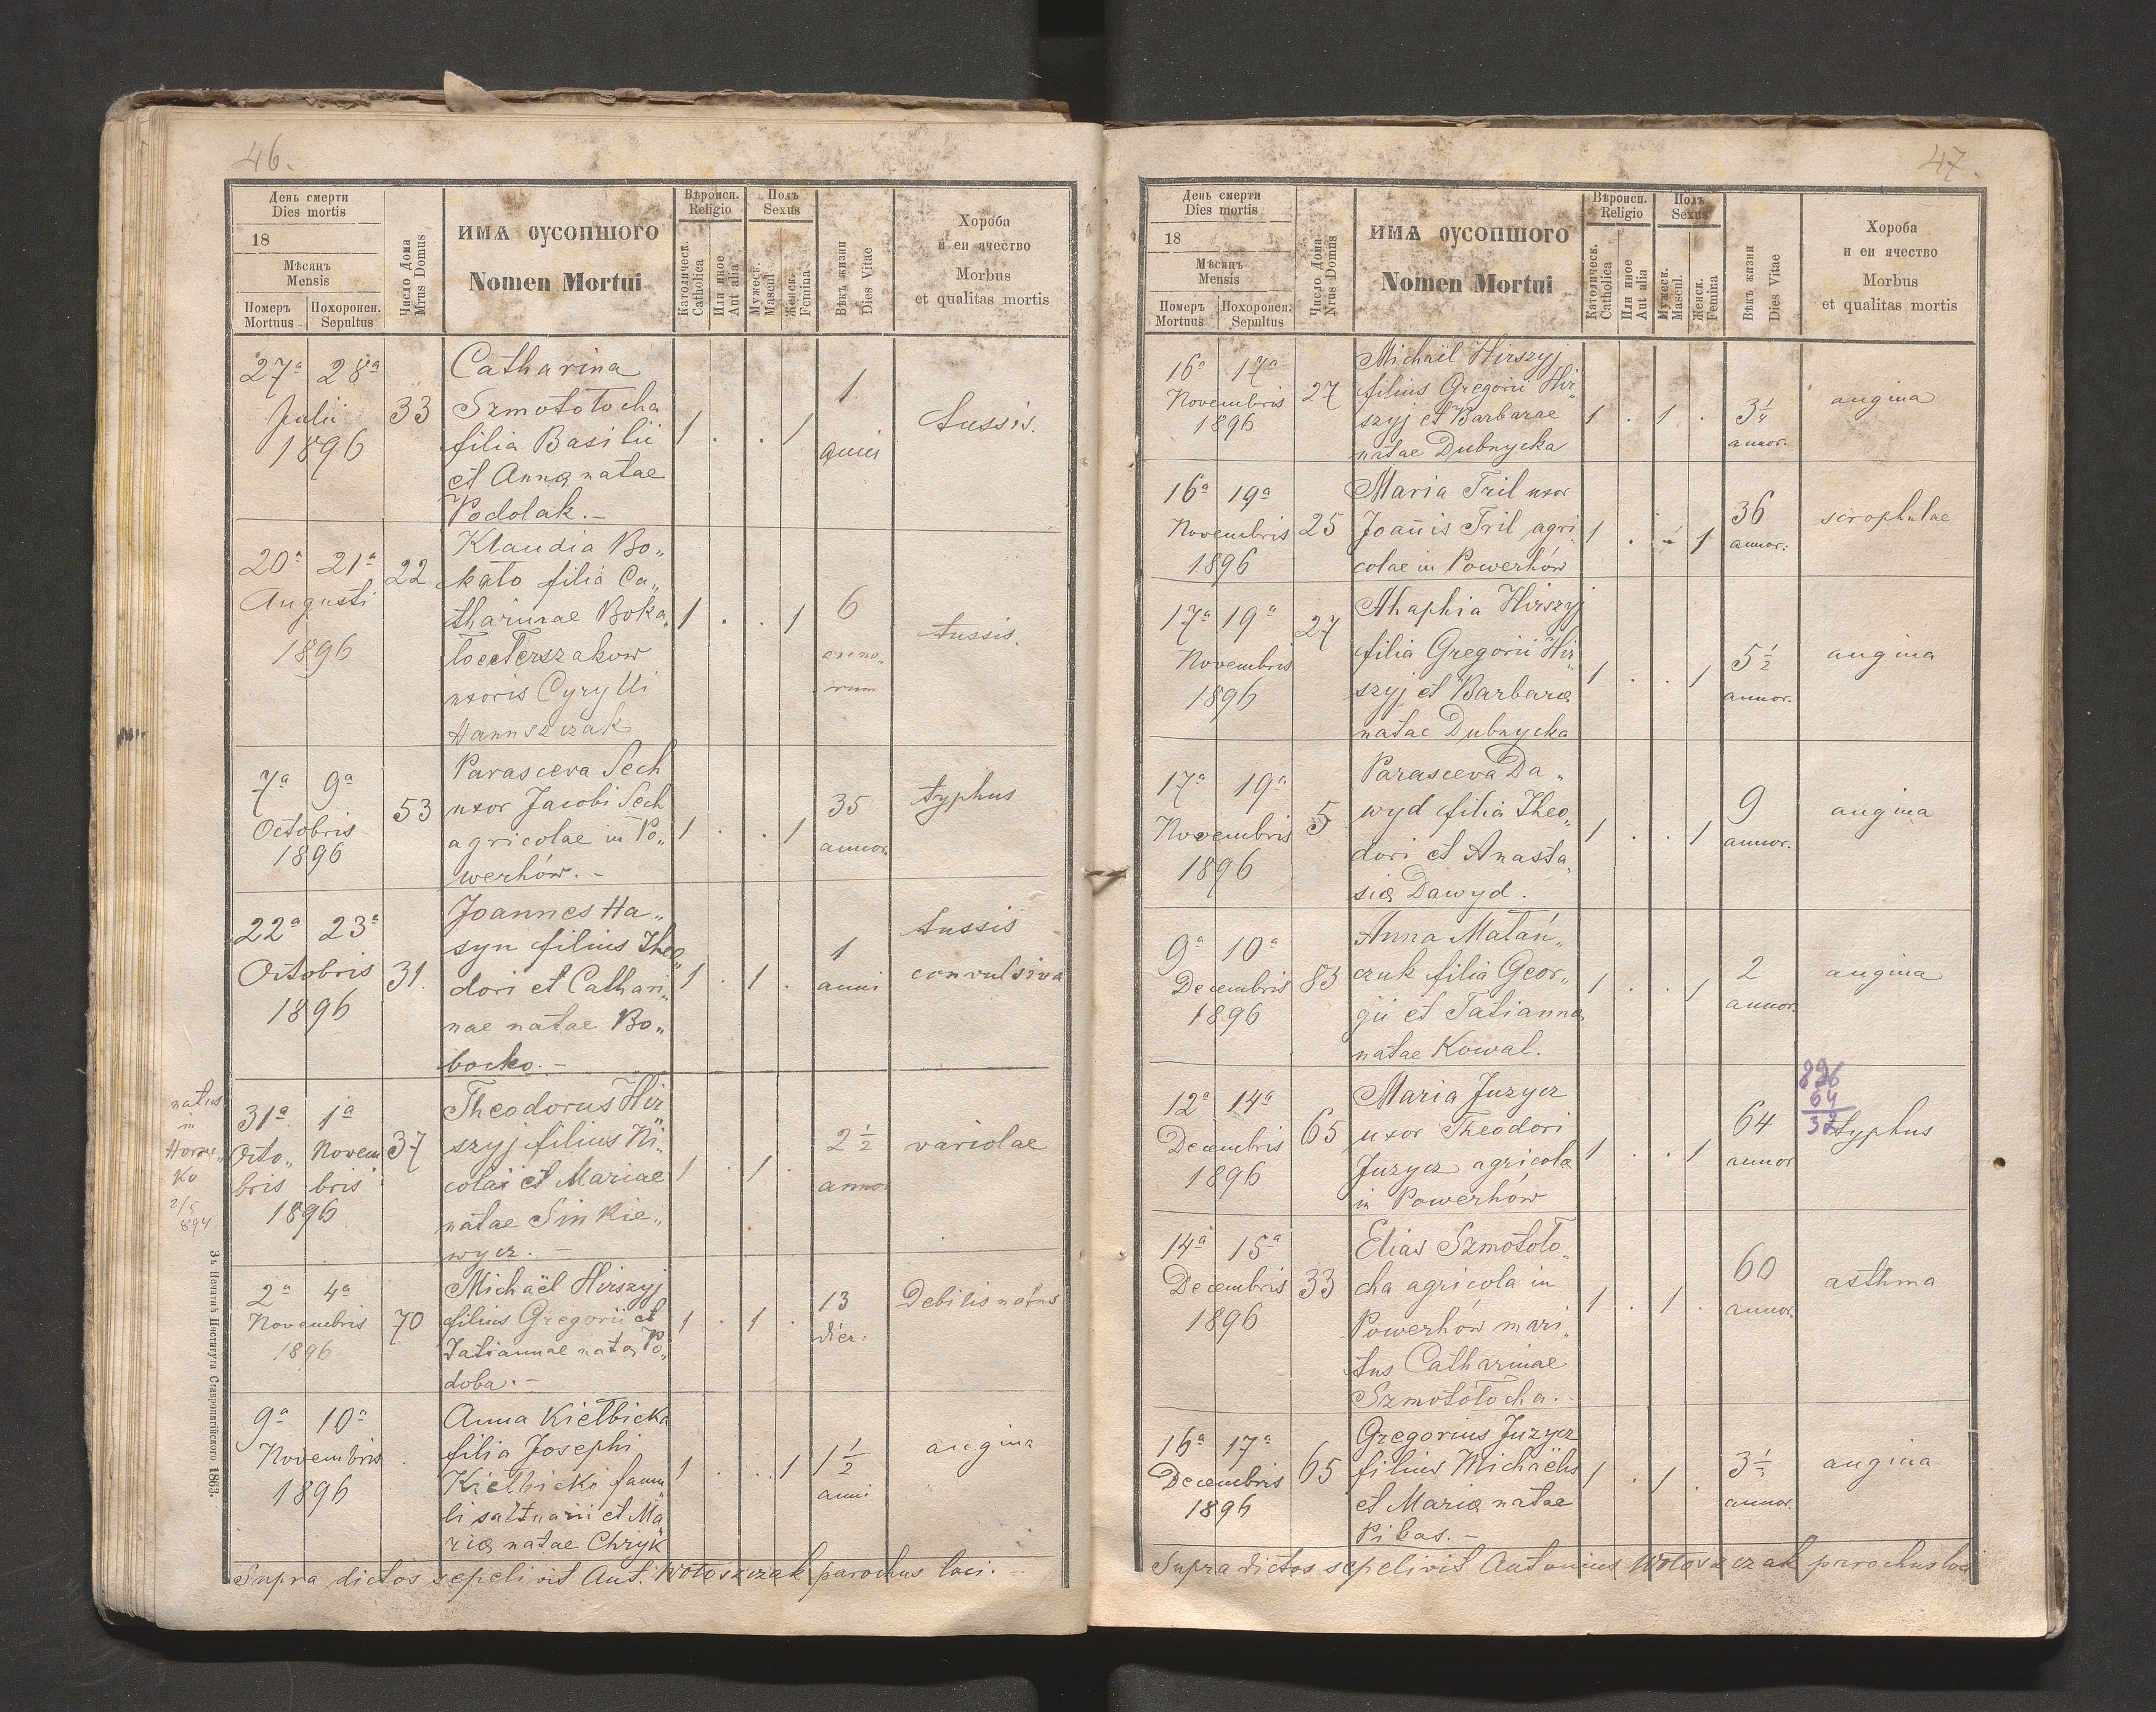 46.
День смерти
Dies mortis
18
Мѣсяцъ
Mensis
Померъ Похоронен.
Mortuus Sepultus
Число Дома
Mrus Domus
ИМѦ ОУСОПШОГО
Nomen Mortui
Вѣроисп.
Religio
Католическ.
Catholica
Или иное
Aut alia
Полъ
Sexus
Мужеск.
Mascul
Женск.
Femina
Вѣкъ жизни
Dies Vitae
Хороба
и еи ячество
Morbus
et qualitas mortis
27ª 28ª
Julii
1896
33
Catharina
Szmototocha
filia Basilii
et Annæ natae
Podolak.–
1 . . 1
1
anni
tussis.
20ª 21ª
Augusti
1896
22
Klaudia Bo„
kało filia Ca„
tharinae Boka„
Terszakow
uxoris Cyrylli
Hannszczak
1 . . 1
6
anno„
rum
tussis.
7ª 9ª
Octobris
1896
53
Parasceva Sech
uxor Jacobi Sech
agricolae in Po„
werhów.–
1 . . 1
35
annor.
typhus
22ª 23ª
Octobris
1896
31.
Joannes Ha„
syn filius Theo„
dori et Cathari„
nae natae Bo„
bocko.–
1 . 1 .
1
anni
tussis
convulsiva
natus
in
2/5
894
31ª 1ª
Octo„ Novem
bris bris
1896
37
Theodorus Hir„
szyj filius Ni„
colai et Mariae
natae Sinkie„
wycz.–
1 . 1 .
2 1/2
annor
variolae
2ª 4ª
Novembris
1896
70
Michaël Hirszyj
filius Gregorii et
Tatiannae natæ Po„
doba.–
1 . 1 .
13
dier.
Debilis natus
9ª 10ª
Novembris
1896
Anna Kiełbicka
filia Josephi
Kiełbicki famu„
li saltuarii et Ma„
riæ natae Chryk
1 . . 1
1 1/2
anni
angina
Supra dictos sepelivit Ant. Wołoszczak parochus loci.–
Зъ Печатнѣ Института Ставропигійского 1863.
47.
День смерти
Dies mortis
18
Мѣсяцъ
Mensis
Померъ Похоронен.
Mortuus Sepultus
Число Дома
Nrus Domus
ИМѦ ОУСОПШОГО
Nomen Mortui
Вѣроисп.
Religio
Католическ.
Catholica
Или иное
Aut alia
Полъ
Sexus
Мужеск.
Mascul.
Женск.
Femina
Вѣкъ жизни
Dies Vitae
Хороба
и еи ячество
Morbus
et qualitas mortis
16ª 17ª
Novembris
1896
27
Michaël Hirszyj
filius Gregorii Hir„
szyj et Barbarae
natae Dubnycka
1 . 1 .
3 1/4
annor.
angina
16ª 19ª
Novembris
1896
25
Maria Tril uxor
Joañis Tril agri„
colae in Powerhów
1 . . 1
36
annor.
scrophulae
17ª 19ª
Novembris
1896
27
Ahaphia Hirszyj
filia Gregorii Hir„
szyj et Barbaræ
natae Dubnycka
1 . . 1
5 1/2
annor.
angina
17ª 19ª
Novembris
1896
5
Parasceva Da„
wyd filia Theo„
dori et Anasta„
siæ Dawyd.
1 . . 1
9
annor.
angina
9ª 10ª
Decembris
1896
83
Anna Matań„
czuk filia Geor„
gii et Tatiannæ
natae Kowal.
1 . . 1
2
annor.
angina
12ª 14ª
Decembris
1896
65
Maria Juzycz
uxor Theodori
Juzycz agricolæ
in Powerhów
1 . . 1
64
annor
896
64
32
typhus
14ª 15ª
Decembris
1896
33
Elias Szmototo„
cha agricola in
Powerhów mari„
tus Catharinae
Szmototocha.
1 . 1 .
60
annor.
asthma
16ª 17ª
Decembris
1896
65
Gregorius Juzycz
filius Michaëlis
et Mariæ natae
Pibas.–
1 . 1 .
3 1/3
annor.
angina
Supra dictos sepelivit Antonius Wołoszczak parochus loci